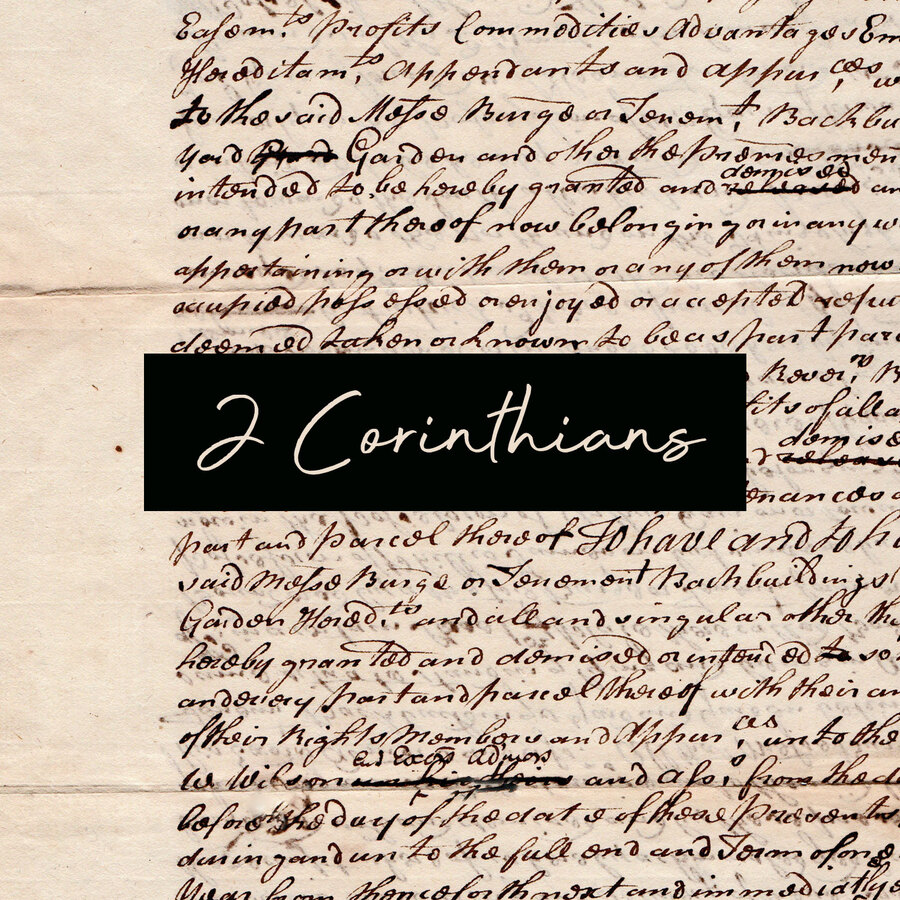 Easem.ts Profits Commodities Advantages Em
Hereditam.ts Appendants and appur.ces w
to the said Messe Burge or Tenem.t, Backbu
yard Garden and other the premes men
intended to be hereby granted and demised released an
or any part thereof now belonging or in any w
appertaining or with them or any of them now
occupied possessed or enjoyed or accepted repu
deemed taken or known to be as part parc
Rever.n R
fits of all a
2 Corinthians
demise
d release
tenances a
part and parcel thereof To have and to ho
said Messe Burge or Tenement Backbuildings
Garden Hered.ts and all and singular other the
hereby granted and demised or intended to so
and every part and parcel thereof with their an
of their Rights Members and Appur.ces unto the
W Wilson Exors Admors and Ass.s from the d
before the day of the date of these presents
during and unto the full end and Term of one
Year from thenceforth next and immediately e